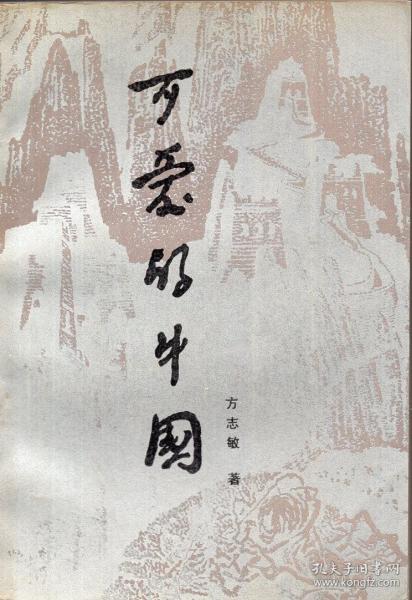 可愛的中國
方志敏 著
孔夫子旧书网
www.kongfz.com